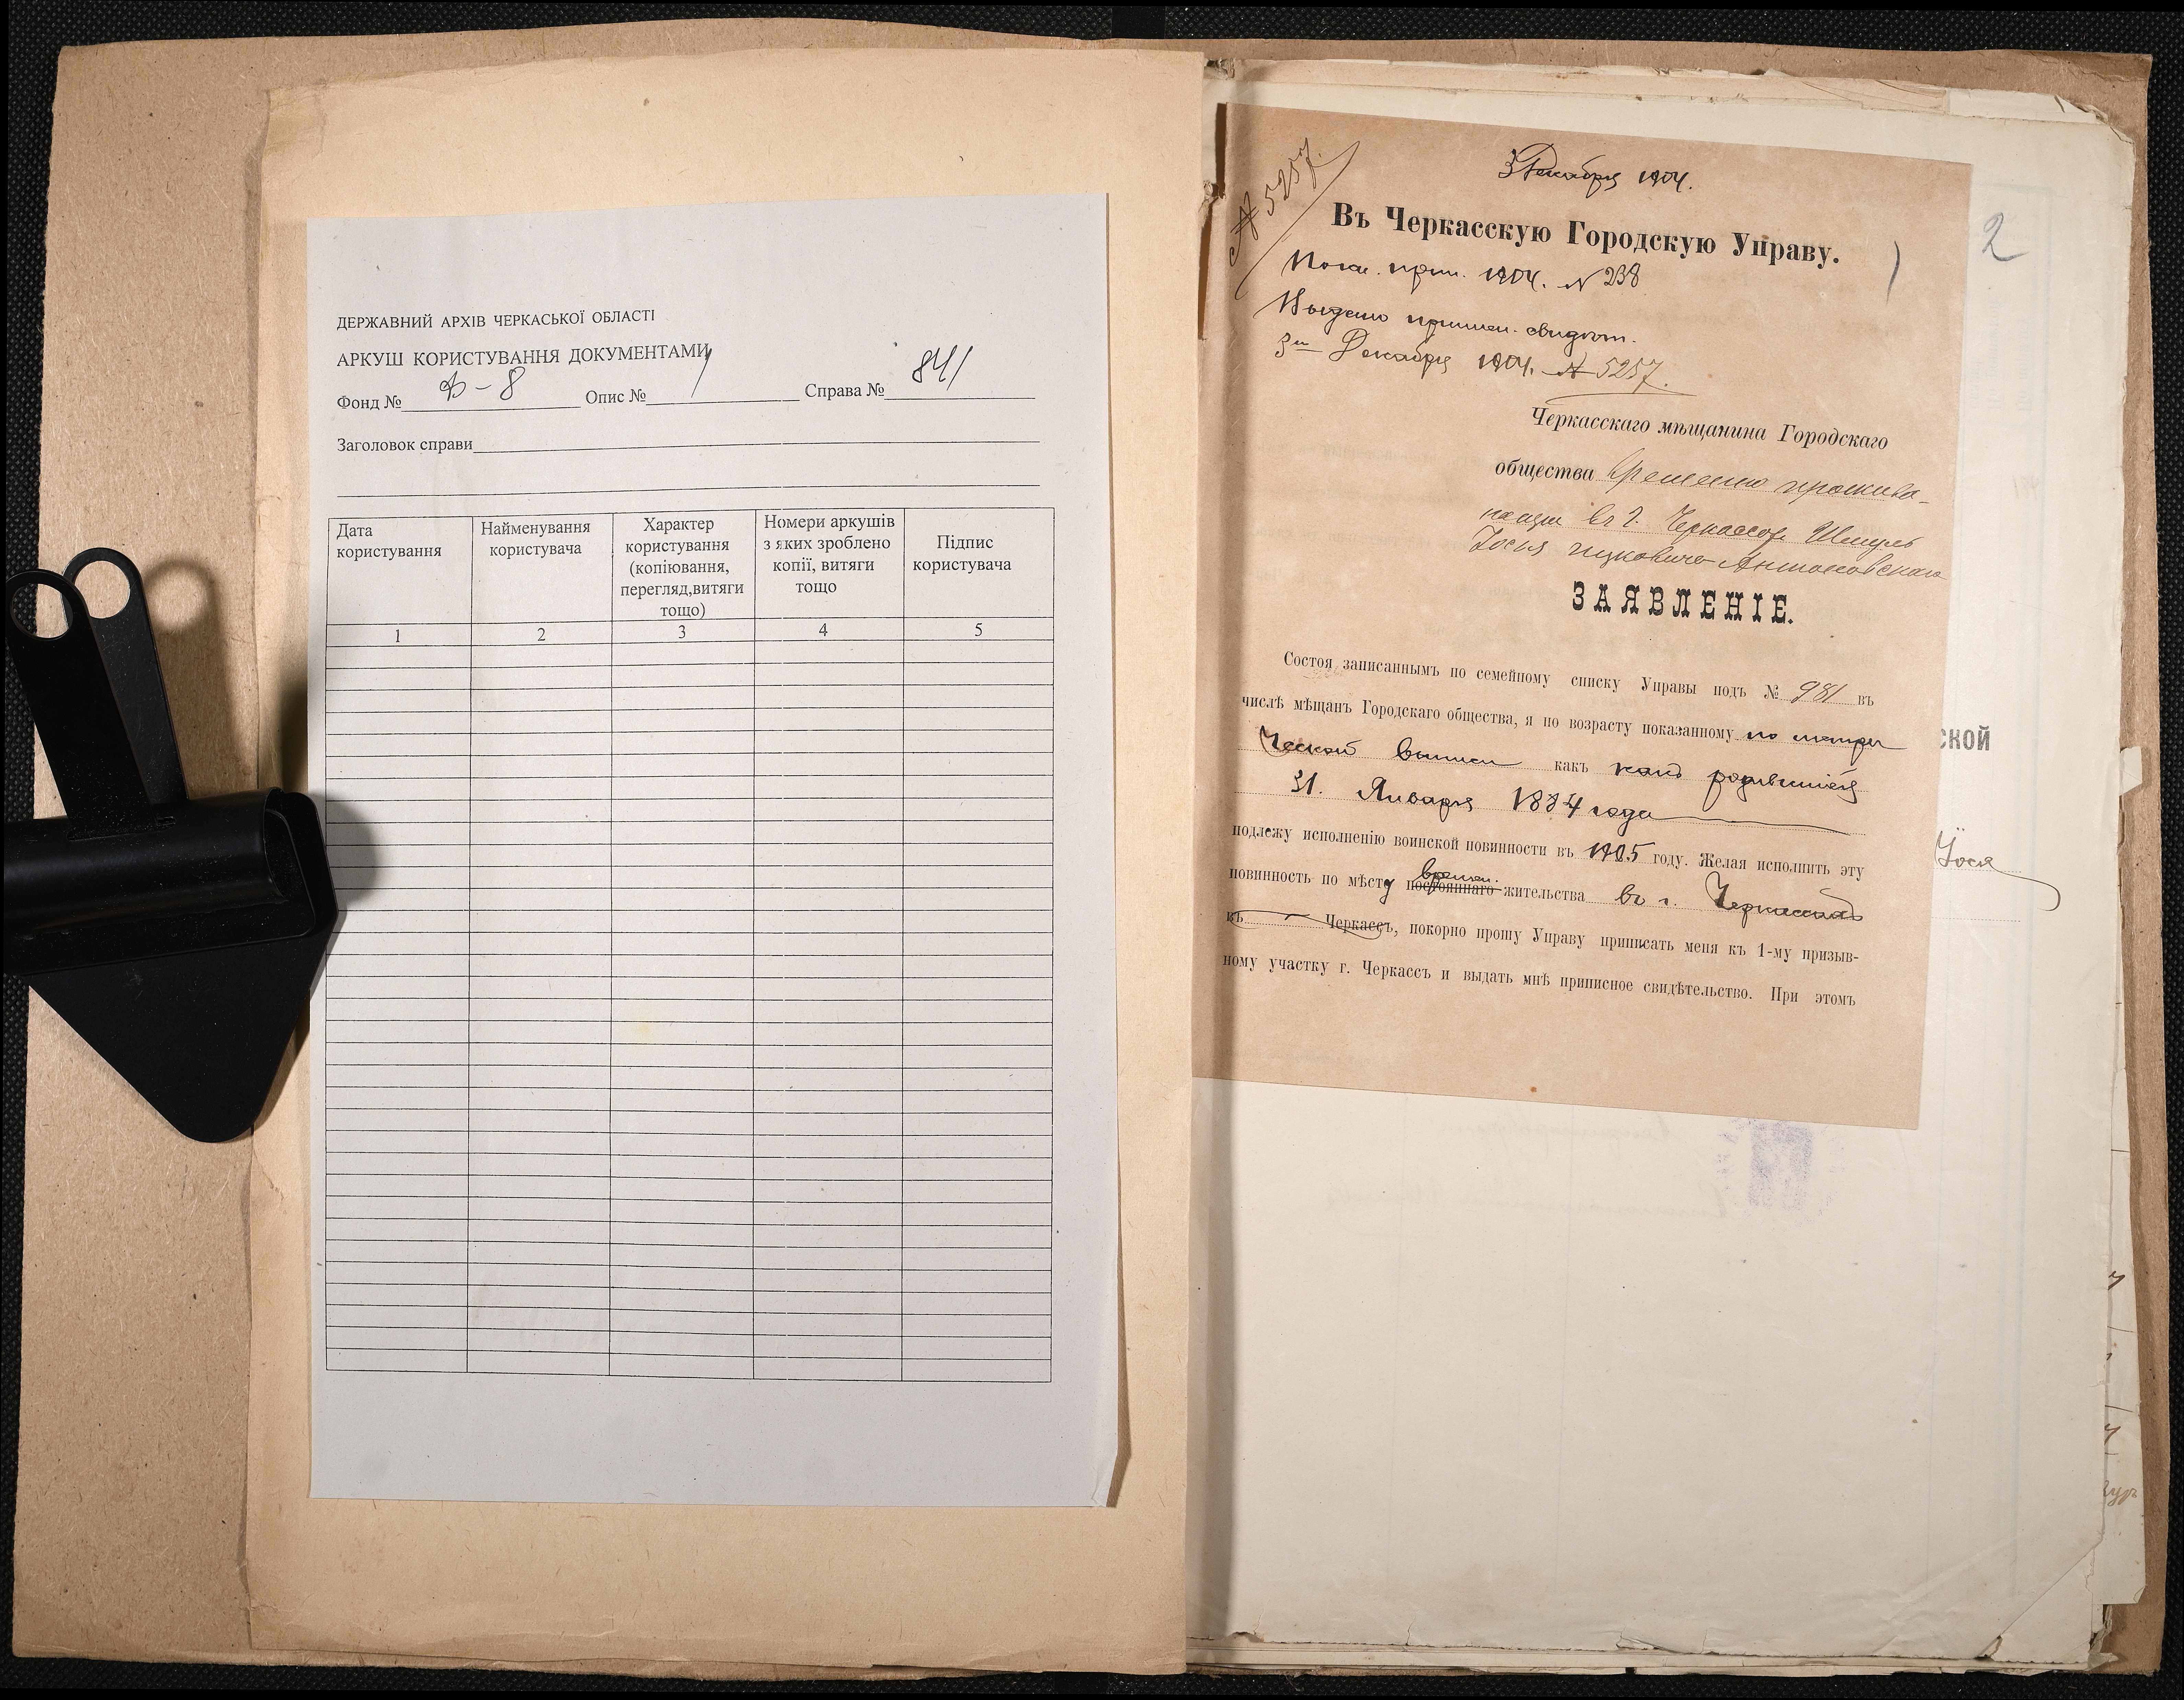 ДЕРЖАВНИЙ АРХІВ ЧЕРКАСЬКОЇ ОБЛАСТІ
АРКУШ КОРИСТУВАННЯ ДОКУМЕНТАМИ
Фонд № Ф-8 Опис № 1 Справа № 841
Заголовок справи
Дата користування
Найменування користувача
Характер користування (копіювання, перегляд,витяги тощо)
Номери аркушів з яких зроблено копії, витяги тощо
Підпис користувача
1 2 3 4 5
№ 5257.
3 Декабря 1904.
Въ Черкасскую Городскую Управу.
2
1904. № 238
Выдано свидѣт.
3го Декабря 1904. № 5257.
Черкасскаго мѣщанина Городскаго
общества временно прожива-
въ г. Черкассахъ Шмуль
Іосья Ицковича
ЗАЯВЛЕНІЕ.
Состоя записаннымъ по семейному списку Управы подъ № 981 въ
числѣ мѣщанъ Городскаго общества, я по возрасту показанному по метри
ческой выписи какъ родившійся
31. Января 1884 года
подлежу исполненію воинской повинности въ 1905 году. Желая исполнить эту
времен.
повинность по мѣсту постояннаго жительства въ г. Черкассахъ
въ Черкассъ, покорно прошу Управу приписать меня къ 1-му призыв-
ному участку г. Черкассъ и выдать мнѣ приписное свидѣтельство. При этомъ
ской
Іося